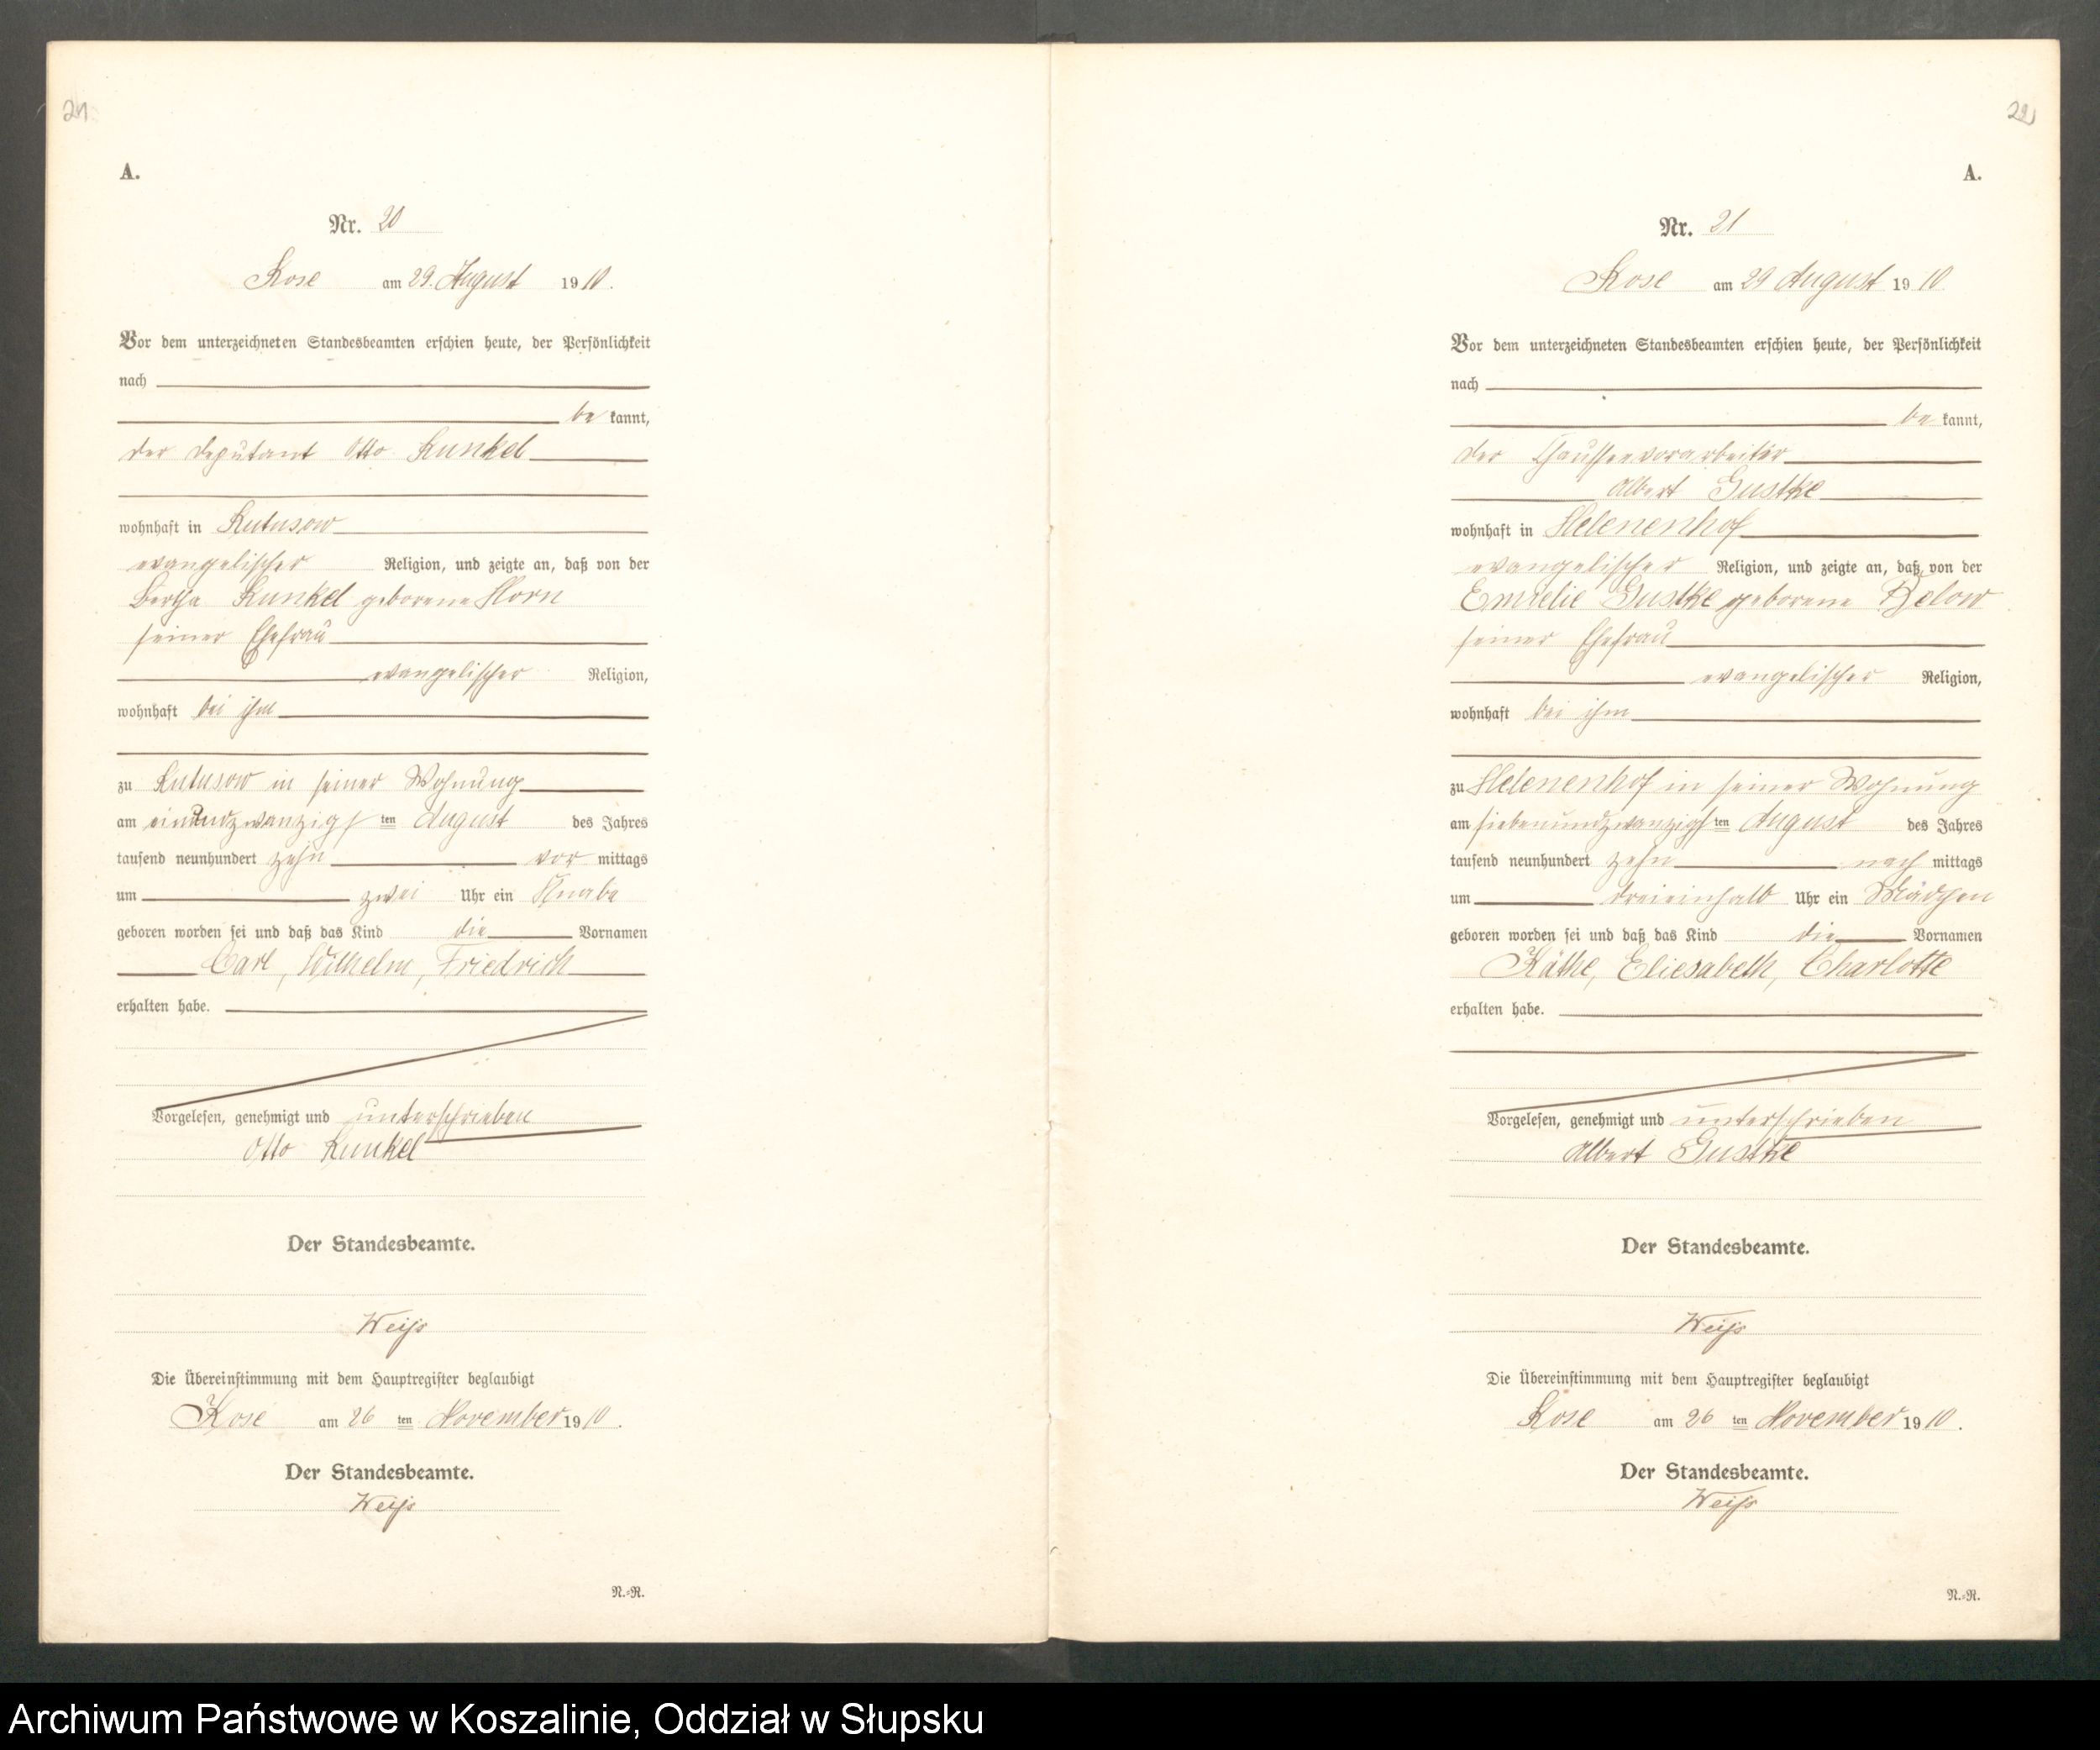 21
A.
Nr. 20
Kose am 29. August 1910.
Vor dem unterzeichneten Standesbeamten erschien heute, der Persönlichkeit
nach
be kannt,
der Deputant Otto Kunkel
wohnhaft in Kutusow
evangelischer Religion, und zeigte an, daß von der
Bertha Kunkel geborene Horn
seiner Ehefrau
evangelischer Religion,
wohnhaft bei ihm
zu Kutusow in seiner Wohnung
am einundzwanzigsten August des Jahres
tausend neunhundert zehn vor mittags
um zwei Uhr ein Knabe
geboren worden sei und daß das Kind die Vornamen
Carl, Wilhelm, Friedrich
erhalten habe.
Vorgelesen, genehmigt und unterschrieben
Otto Kunkel
Der Standesbeamte.
Weiß
Die Übereinstimmung mit dem Hauptregister beglaubigt
Kose am 26 ten November 1910.
Der Standesbeamte.
Weiß
N.-R.
22
A.
Nr. 21
Kose am 29 August 1910
Vor dem unterzeichneten Standesbeamten erschien heute, der Persönlichkeit
nach
be kannt,
der Chausseevorarbeiter
Albert Gustke
wohnhaft in Helenenhof
evangelischer Religion, und zeigte an, daß von der
Emielie Gustke geborene Below
seiner Ehefrau
evangelischer Religion,
wohnhaft bei ihm
zu Helenenhof in seiner Wohnung
am siebenundzwanzigsten August des Jahres
tausend neunhundert zehn nach mittags
um dreieinhalb Uhr ein Mädchen
geboren worden sei und daß das Kind die Vornamen
Käthe, Eliesabeth, Charlotte
erhalten habe.
Vorgelesen, genehmigt und unterschrieben
Albert Gustke
Der Standesbeamte.
Weiß
Die Übereinstimmung mit dem Hauptregister beglaubigt
Kose am 26 ten November 1910.
Der Standesbeamte.
Weiß
N.-R.
Archiwum Państwowe w Koszalinie, Oddział w Słupsku